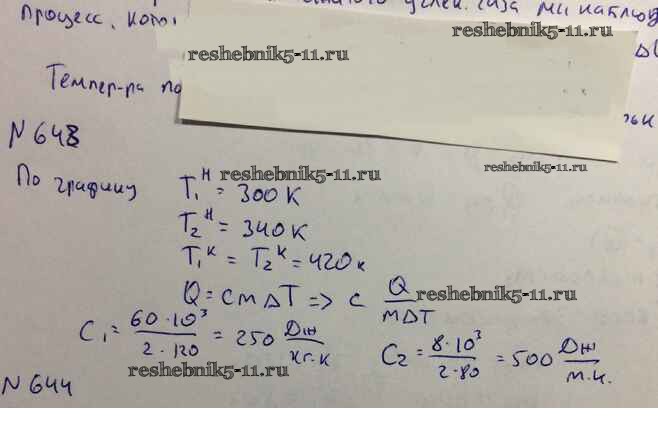 процесс, кот
углек. газа мы наблюд
reshebnik5-11.ru
reshebnik5-11.ru
Темпер-ра по
N 648
reshebnik5-11.ru
По графику T₁ᴴ = 300 К
reshebnik5-11.ru
T₂ᴴ = 340 К
T₁ᴷ = T₂ᴷ = 420 к
Q = cm ΔT => c Q / mΔT
reshebnik5-11.ru
C₁ = 60·10³ / 2·120 = 250 Дж / кг·к
C₂ = 8·10³ / 2·80 = 500 Дж / м.к.
reshebnik5-11.ru
N 644